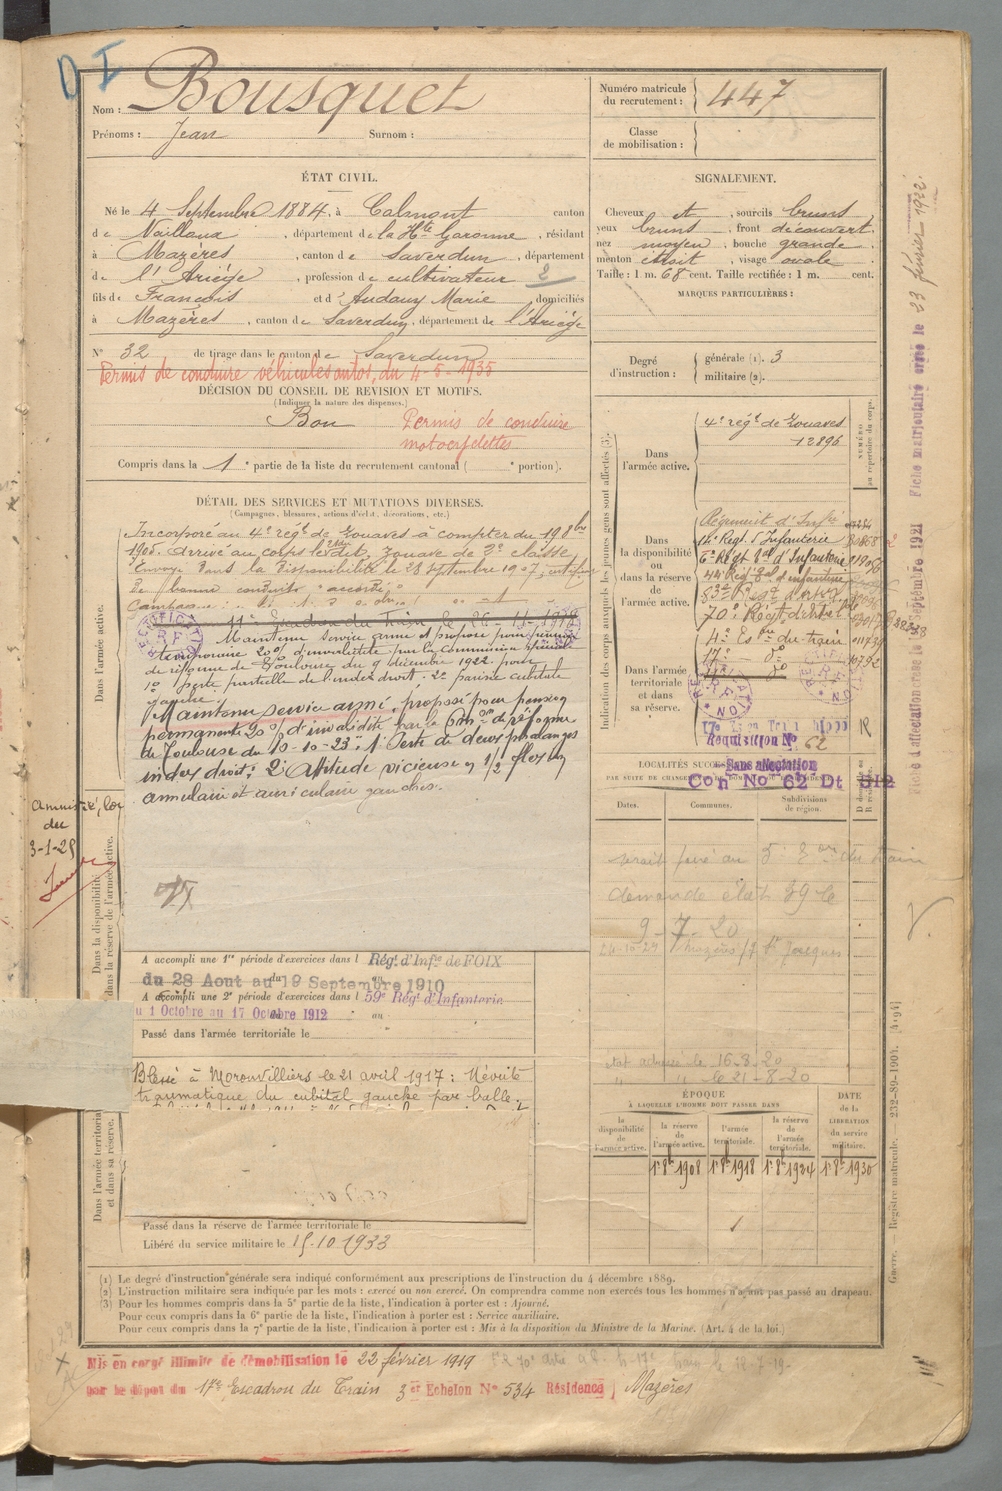 D I
Nom : Bousquet
Prénoms : Jean Surnom :
Numéro matricule du recrutement : 447
Classe de mobilisation :
ÉTAT CIVIL.
Né le 4 Septembre 1884, à Calmont canton
de Naillaux, département de la Hte Garonne, résidant
à Mazères, canton de Saverdun, département
de l'Ariège, profession de cultivateur 2
fils de François et d'Audouy Marie domiciliés
à Mazères, canton de Saverdun, département de l'Ariège
N° 32 de tirage dans le canton de Saverdun
Permis de conduire véhicules autos, du 4-5-1935
DÉCISION DU CONSEIL DE REVISION ET MOTIFS.
(Indiquer la nature des dispenses.)
Bon
Permis de conduire
motocyclettes
Compris dans la 1e partie de la liste du recrutement cantonal ( e portion).
SIGNALEMENT.
Cheveux et, sourcils bruns
yeux bruns, front découvert
nez moyen, bouche grande
menton étroit, visage ovale
Taille : 1 m. 68 cent. Taille rectifiée : 1 m. cent.
MARQUES PARTICULIÈRES :
Degré d'instruction : générale (1). 3
militaire (2).
DÉTAIL DES SERVICES ET MUTATIONS DIVERSES.
(Campagnes, blessures, actions d'éclat, décorations, etc.)
Incorporé au 4e régt de Zouaves à compter du 8bre
1905. Arrivé au corps le dit, Zouave de 2e classe
Envoyé dans la disponibilité le 28 septembre 1907, certificat
de bonne conduite accordé
Campagne :
11e Escadron du Train, le
RECTIFICATION
R F
Maintenu service armé et proposé pour pension
temporaire 20% d'invalidité par la commission spéciale
de réforme de Toulouse du 9 décembre 1922 pour
1° perte partielle de l'index droit. 2°
Maintenu service armé, proposé pour pension
permanente 20% d'invalidité par la Cmon de réforme
de Toulouse du 10-10-23 : 1° Perte de deux phalanges
index droit : 2° Attitude vicieuse en 1/2 flexion
annulaire et auriculaire gauches.
Amnistié, loi
du
3-1-25
Dans l'armée active.
Dans la disponibilité
ou dans la réserve de l'armée active.
Dans l'armée territoriale
et dans sa réserve.
A accompli une 1re période d'exercices dans l Régt d'Infie de FOIX
du 28 Aout au 19 Septembre 1910
A accompli une 2e période d'exercices dans l 59e Régt d'Infanterie
u 1 Octobre au 17 Octobre 1912 au
Passé dans l'armée territoriale le
Blessé à Moronvilliers le 21 avril 1917 : Névrite
traumatique du cubital gauche par balle.
Passé dans la réserve de l'armée territoriale le
Libéré du service militaire le 15-10-1933
Indication des corps auxquels les jeunes gens sont affectés (3).
NUMÉRO au répertoire du corps.
Dans l'armée active. 4e régt de Zouaves
12896
Dans la disponibilité ou dans la réserve de l'armée active.
Régiment d'Infie
14e Régt d'Infanterie
6e Régt d'Infanterie
44e Régt d'infanterie
83e Régt
70e Régt
Dans l'armée territoriale et dans sa réserve.
4e Eson du train
17e — do
RECTIFICATION
R F
17e
Réquisition N° 62
Sans affectation
Con No 62 Dt 312
LOCALITÉS SUCCESSIVES
PAR SUITE DE CHANGEMENT DE DOMICILE OU DE
Dates. Communes. Subdivisions de région.
serait passé au 5e Eon du train
demande état 39 le
9-7-20
Mazères
état adressé le 16-8-20
" " le 21-8-20
ÉPOQUE
À LAQUELLE L'HOMME DOIT PASSER DANS
la disponibilité de l'armée active.
la réserve de l'armée active.
l'armée territoriale.
la réserve de l'armée territoriale.
DATE de la LIBÉRATION du service militaire.
1r 8bre 1908 1r 8bre 1918 1r 8bre 1924 1r 8bre 1930
(1) Le degré d'instruction générale sera indiqué conformément aux prescriptions de l'instruction du 4 décembre 1889.
(2) L'instruction militaire sera indiquée par les mots : exercé ou non exercé. On comprendra comme non exercés tous les hommes n'ayant pas passé au drapeau.
(3) Pour les hommes compris dans la 5e partie de la liste, l'indication à porter est : Ajourné.
Pour ceux compris dans la 6e partie de la liste, l'indication à porter est : Service auxiliaire.
Pour ceux compris dans la 7e partie de la liste, l'indication à porter est : Mis à la disposition du Ministre de la Marine. (Art. 4 de la loi.)
Mis en congé illimité de démobilisation le 22 février 1919
par le dépôt du 17e Escadron du Train 3er Echelon N° 534 Résidence Mazères
Fiche d'affectation créée le Septembre 1921 Fiche matriculaire créée le 23 février 1922.
Guerre. — Registre matricule. — 232-89-1904. [4194]